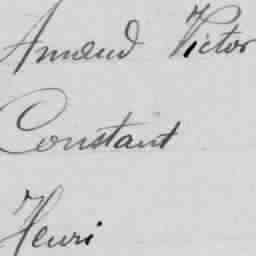 Amand Victor
Constant
Henri